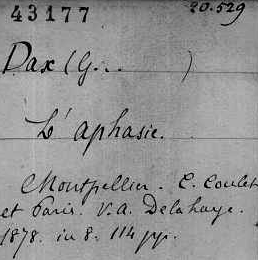 43177 20.529
Dax (G... )
L'aphasie.
Montpellier. C. Coulet
et Paris. V. A. Delahaye.
1878. in 8. 114 pp.